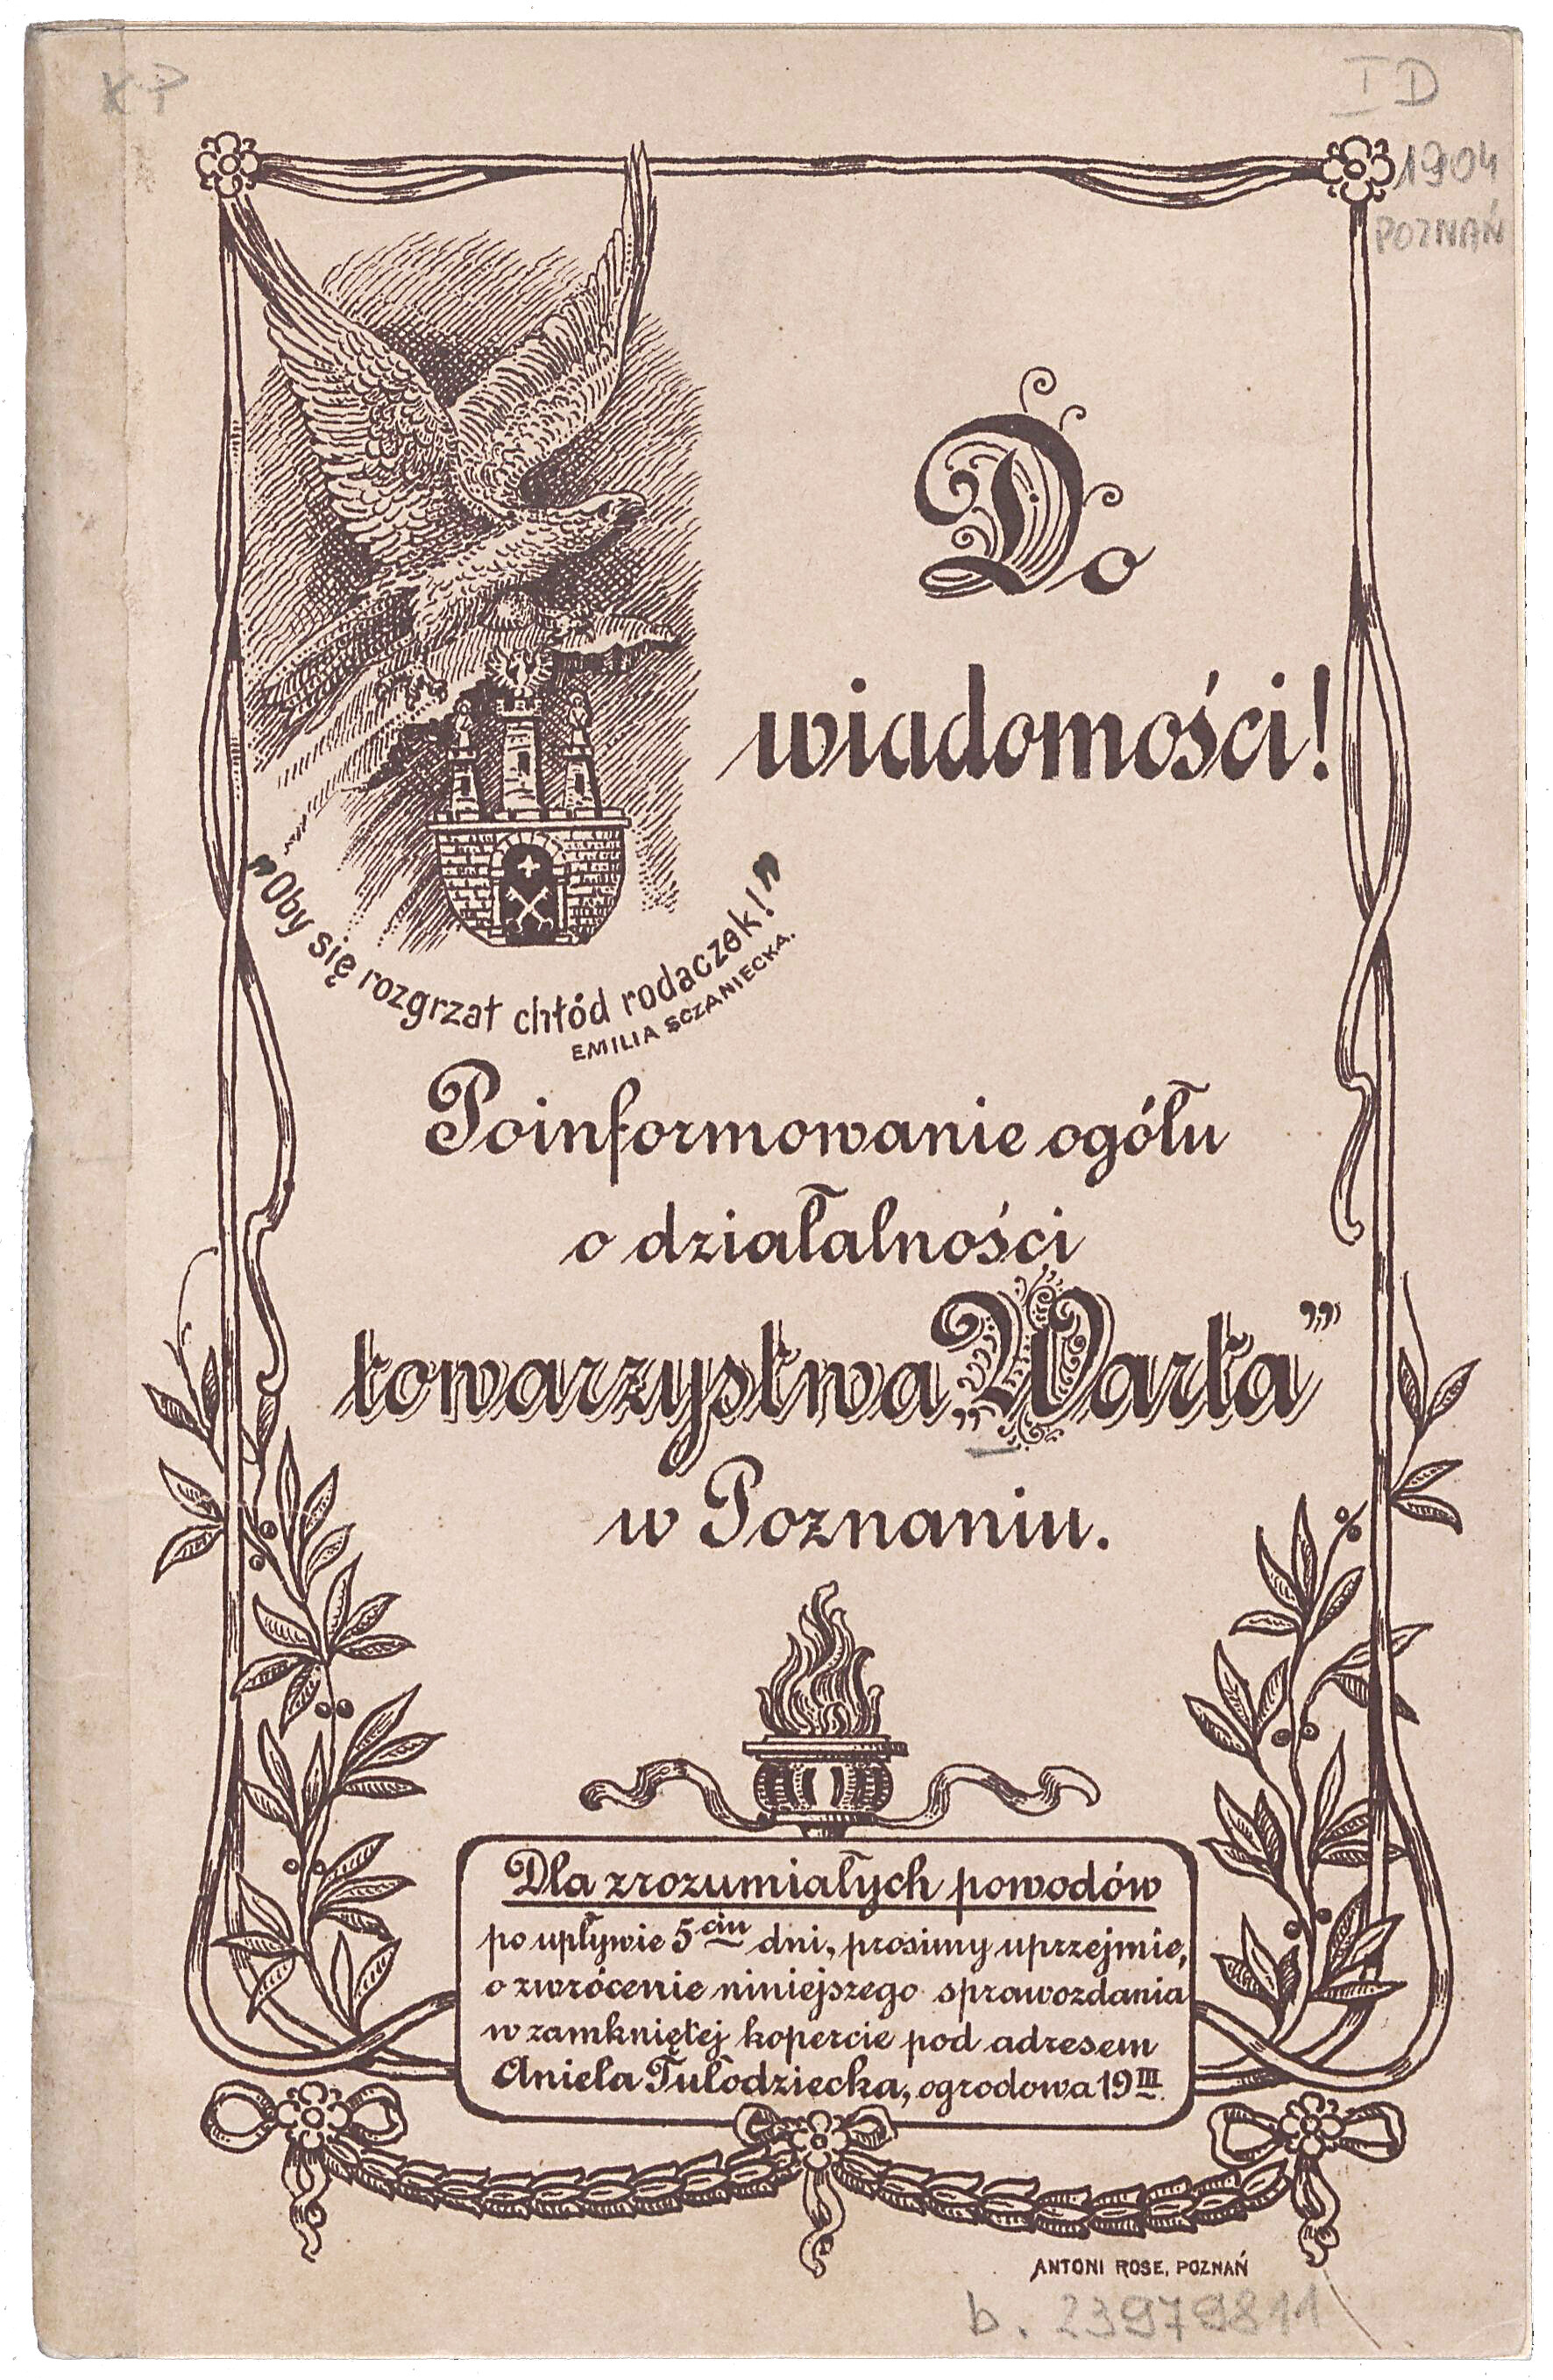 KP
ID
1904
POZNAŃ
Do
wiadomości!
"Oby się rozgrzał chłód rodaczek!"
EMILIA SCZANIECKA.
Poinformowanie ogółu
o działalności
towarzystwa „Warta”
w Poznaniu.
Dla zrozumiałych powodów
po upływie 5ciu dni, prosimy uprzejmie,
o zwrócenie niniejszego sprawozdania
w zamkniętej kopercie pod adresem
Aniela Tułodziecka, ogrodowa 19 III.
ANTONI ROSE, POZNAŃ
b. 23979811